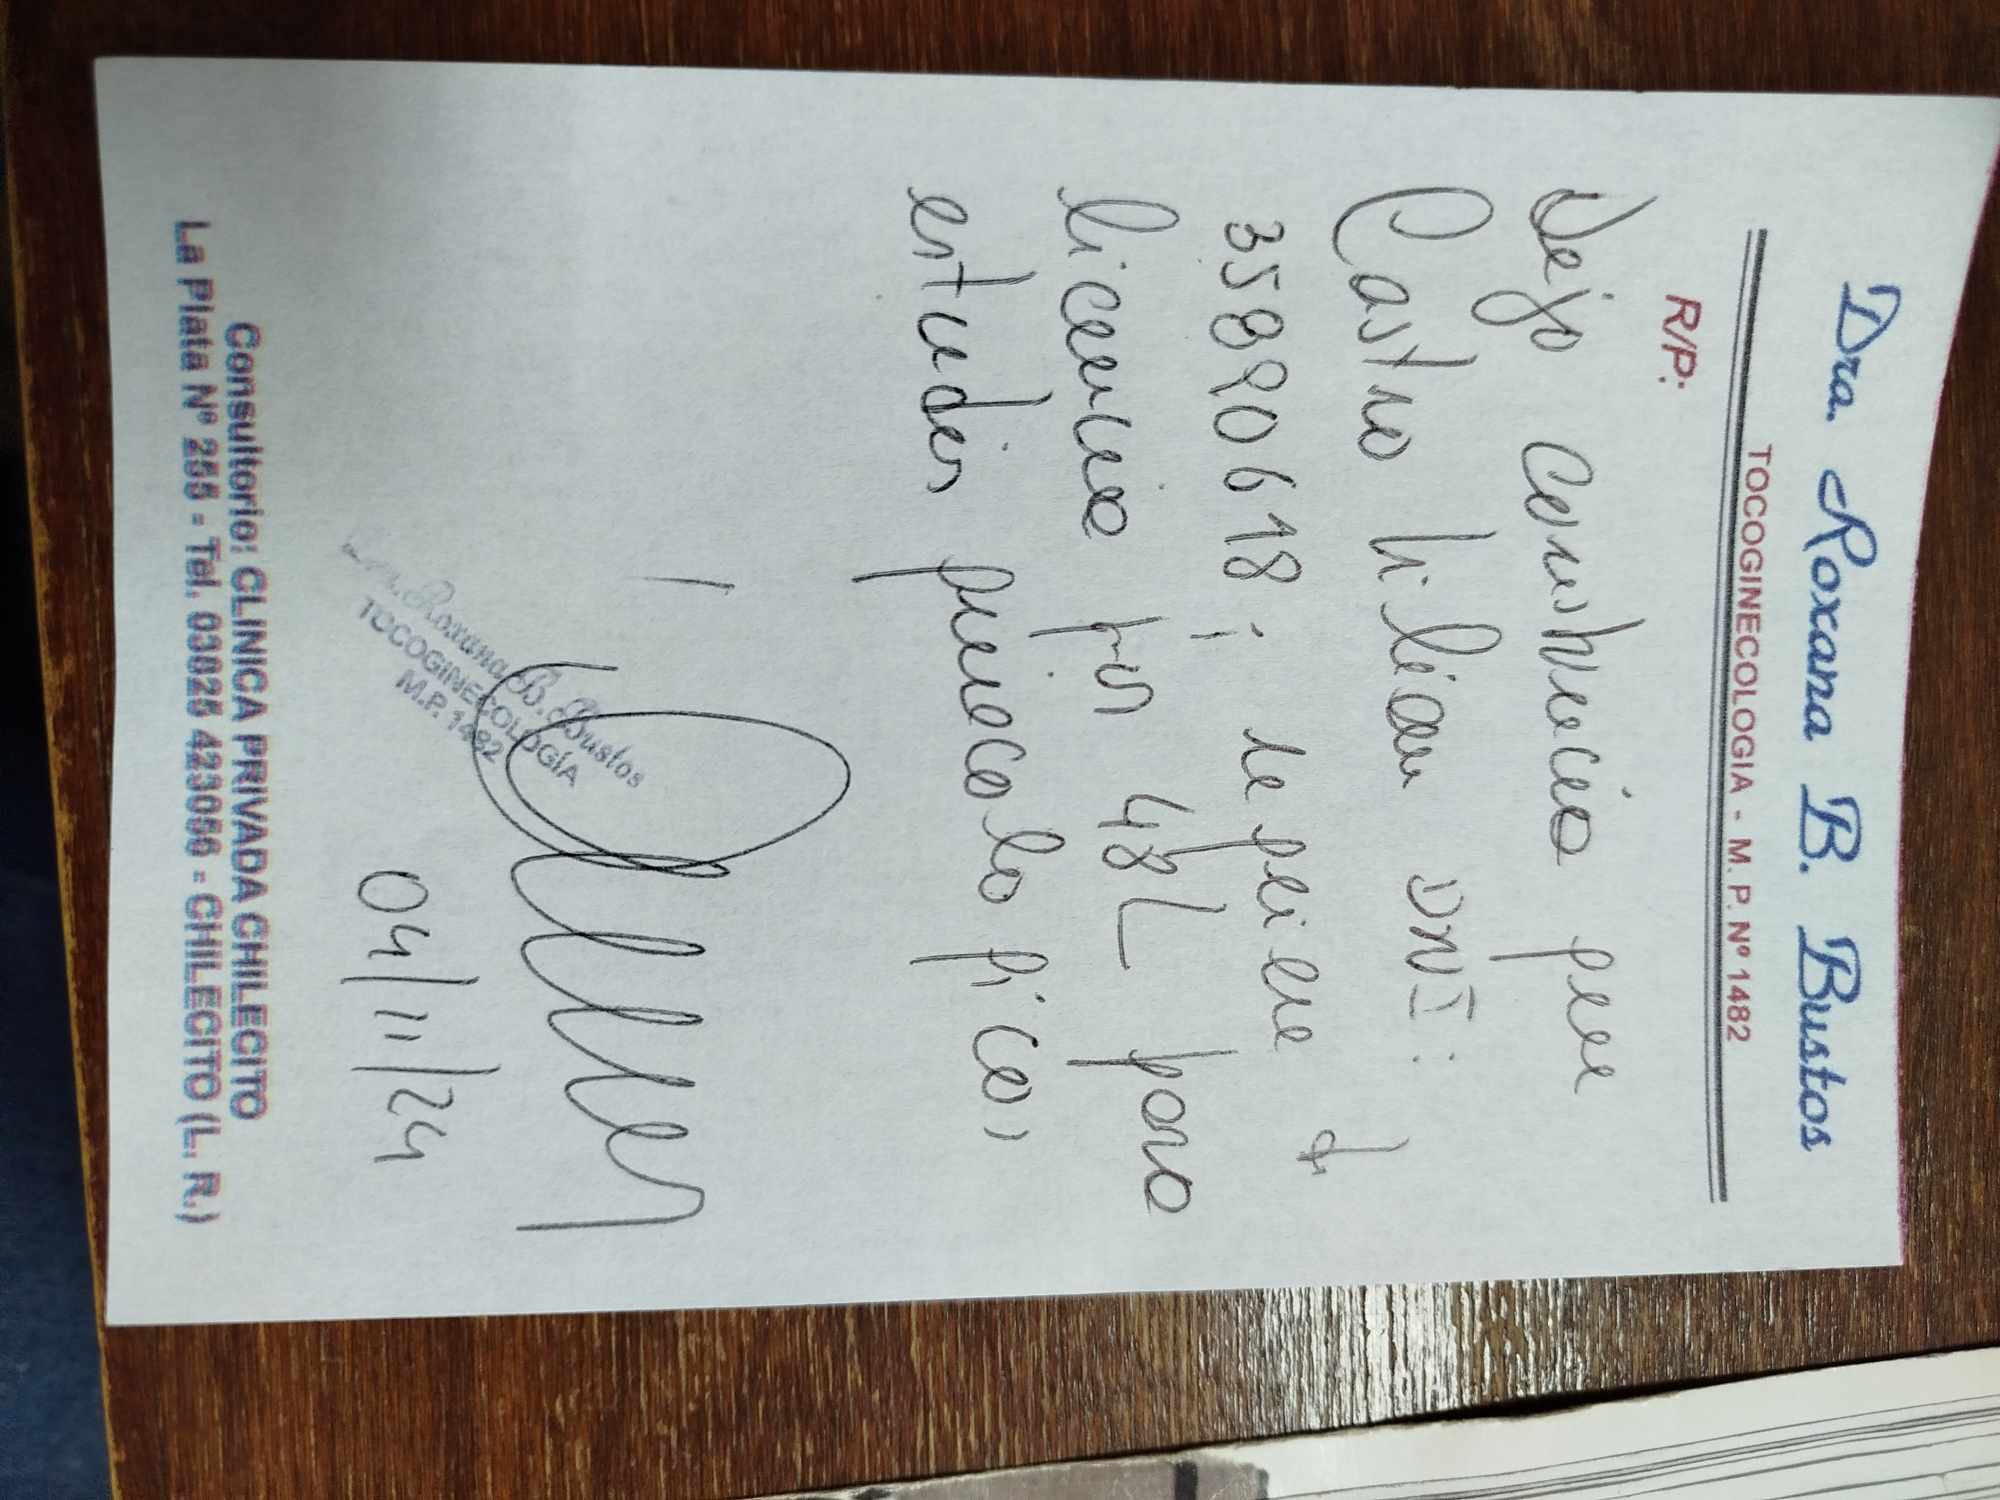 Dra. Roxana B. Bustos
TOCOGINECOLOGIA - M. P. Nº 1482
R/P:
Dejo constancia que
Castro Lilian DNI:
35890618; requiere d
licencia por 48h para
estudios ginecológicos
Dra. Roxana B. Bustos
TOCOGINECOLOGÍA
M.P. 1482
04/11/24
Consultorio: CLINICA PRIVADA CHILECITO
La Plata Nº 255 - Tel. 03825 423056 - CHILECITO (L. R.)